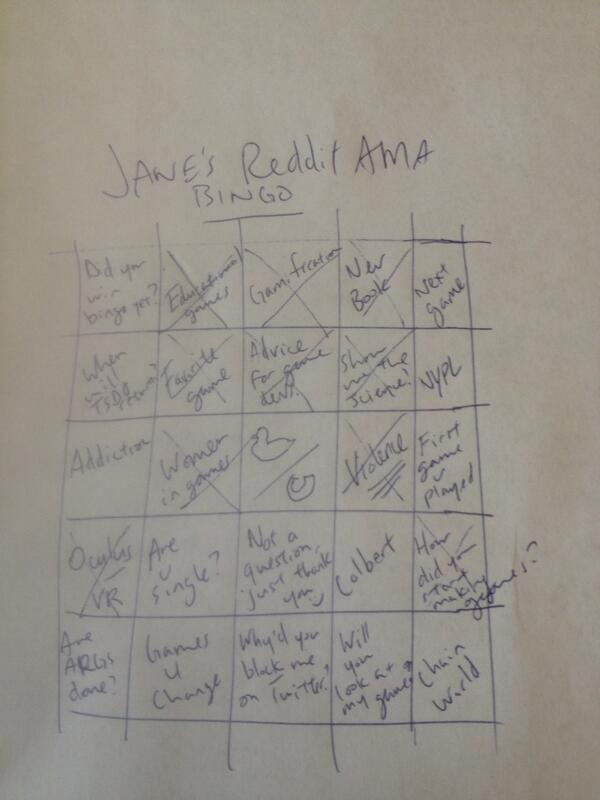 JANE's Reddit AMA
BINGO
Did you
win
bingo yet?
Educational
games
Gamification
New
Book
Next
game
When
will
return?
Favorite
game
Advice
for game
devs?
Show
me the
science!
NYPL
Addiction
Women
in games
Violence
First
game
u
played
Oculus
VR
Are
u
single?
Not a
question,
just thank
you
Colbert
How
did you
start
making
games?
Are
ARGs
done?
Games
4
Change
Why'd you
block me
on Twitter?
Will
you
look at
my game?
Chain
World